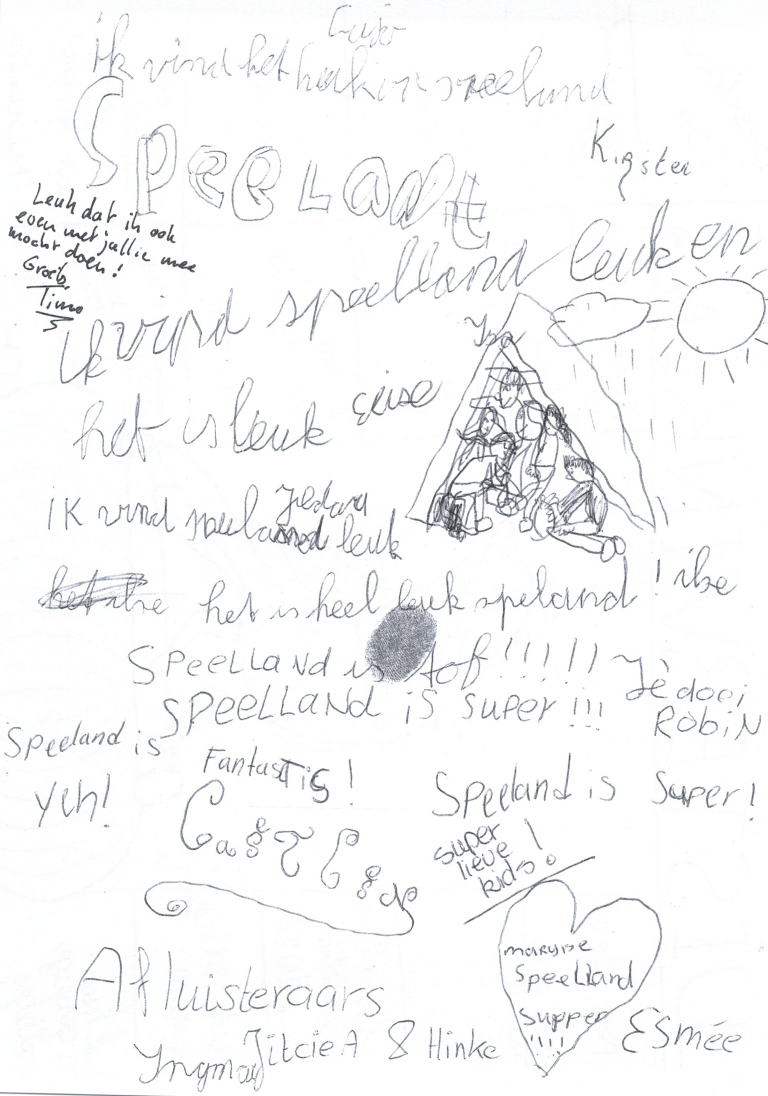 ik vind het leuk in speelland
SPeeLand
Leuk dat ik ook
even met jullie mee
mocht doen!
Groetjes
Timo
ik vind speelland leuk en
Ise
het is leuk
ik vind speeland leuk
ibe het is heel leuk speland! ibe
SPeelland is tof!!!!!
Robin
SPeeLLaNd is super!!!
Speeland is
Fantastis!
yeh!
Speeland is super!
super
lieve
kids!
maryse
Speelland
supper
!!!!
Afluisteraars
Esmée
Yngmar JitcieA & Hinke